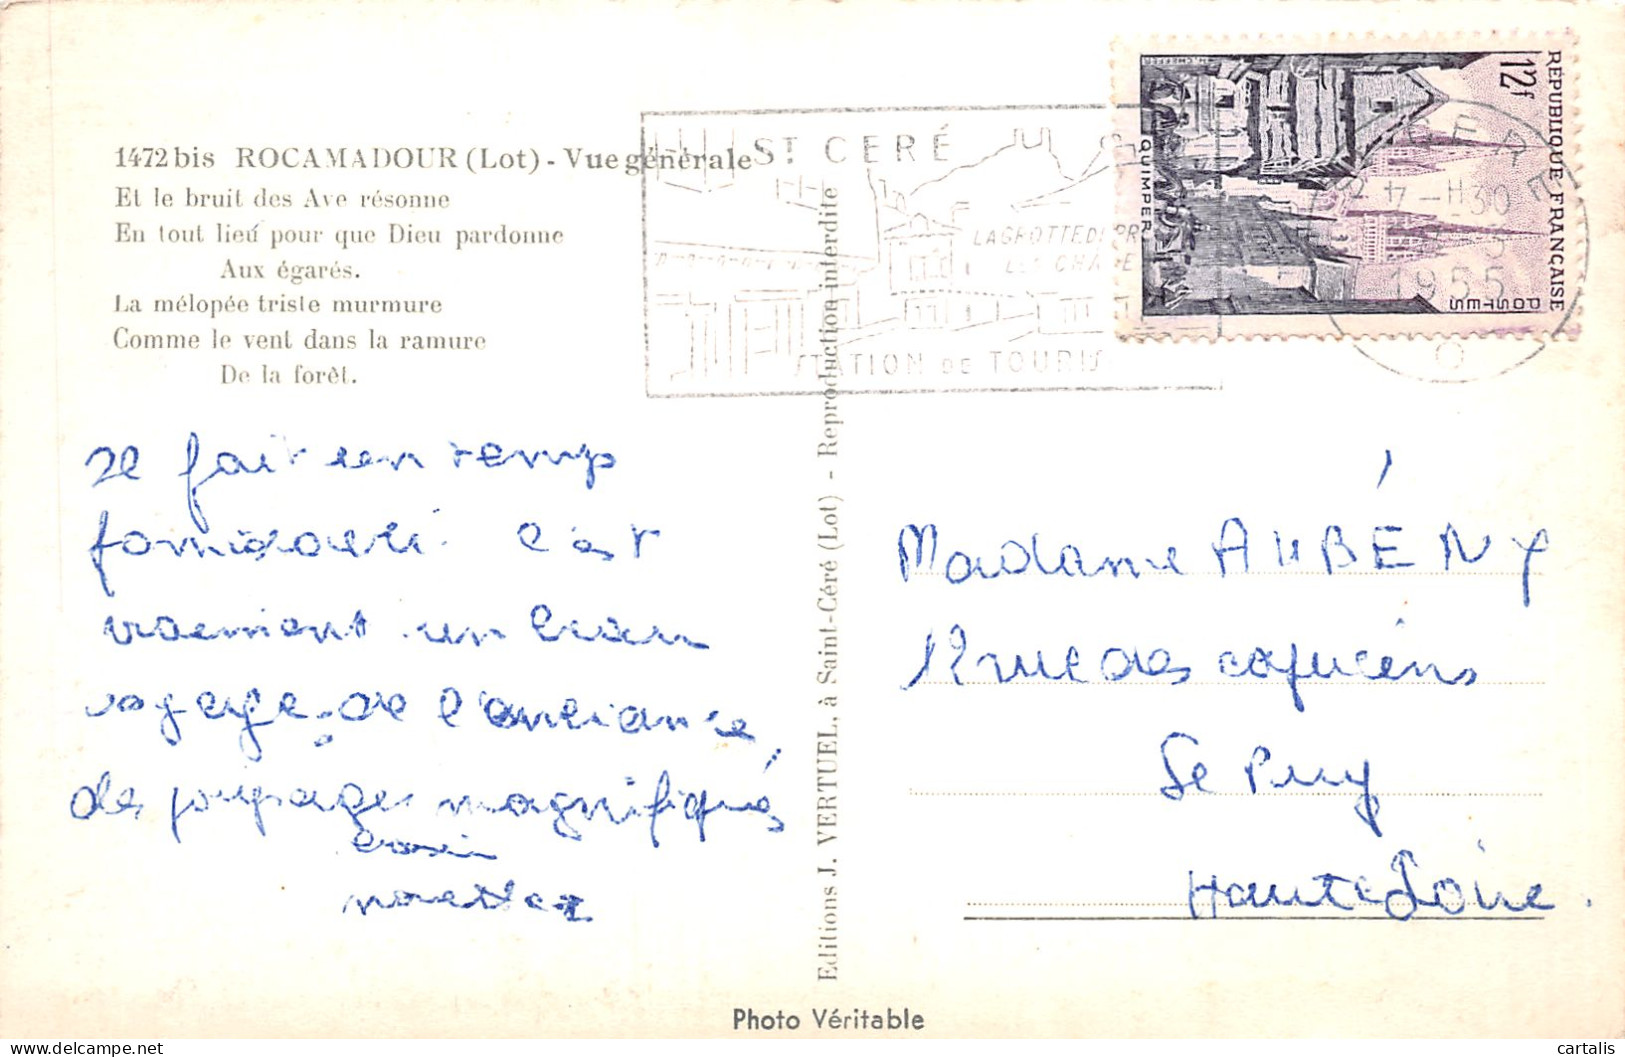 1472 bis ROCAMADOUR (Lot) - Vue générale
Et le bruit des Ave résonne
En tout lieu pour que Dieu pardonne
Aux égarés.
La mélopée triste murmure
Comme le vent dans la ramure
De la forêt.
ST CERÉ
LA GROTTE DE PR
LES CHA
STATION DE TOURIS
RÉPUBLIQUE FRANÇAISE
12f
POSTES
QUIMPER
17-H30
1955
il fait un temps
formidable c'est
vraiment un beau
voyage. de l'ambiance,
des paysages magnifiques
Madame AUBÉNY
12 rue des capucins
Le Puy
Haute Loire.
Editions J. VERTUEL, à Saint-Céré (Lot) - Reproduction interdite
Photo Véritable
cartalis